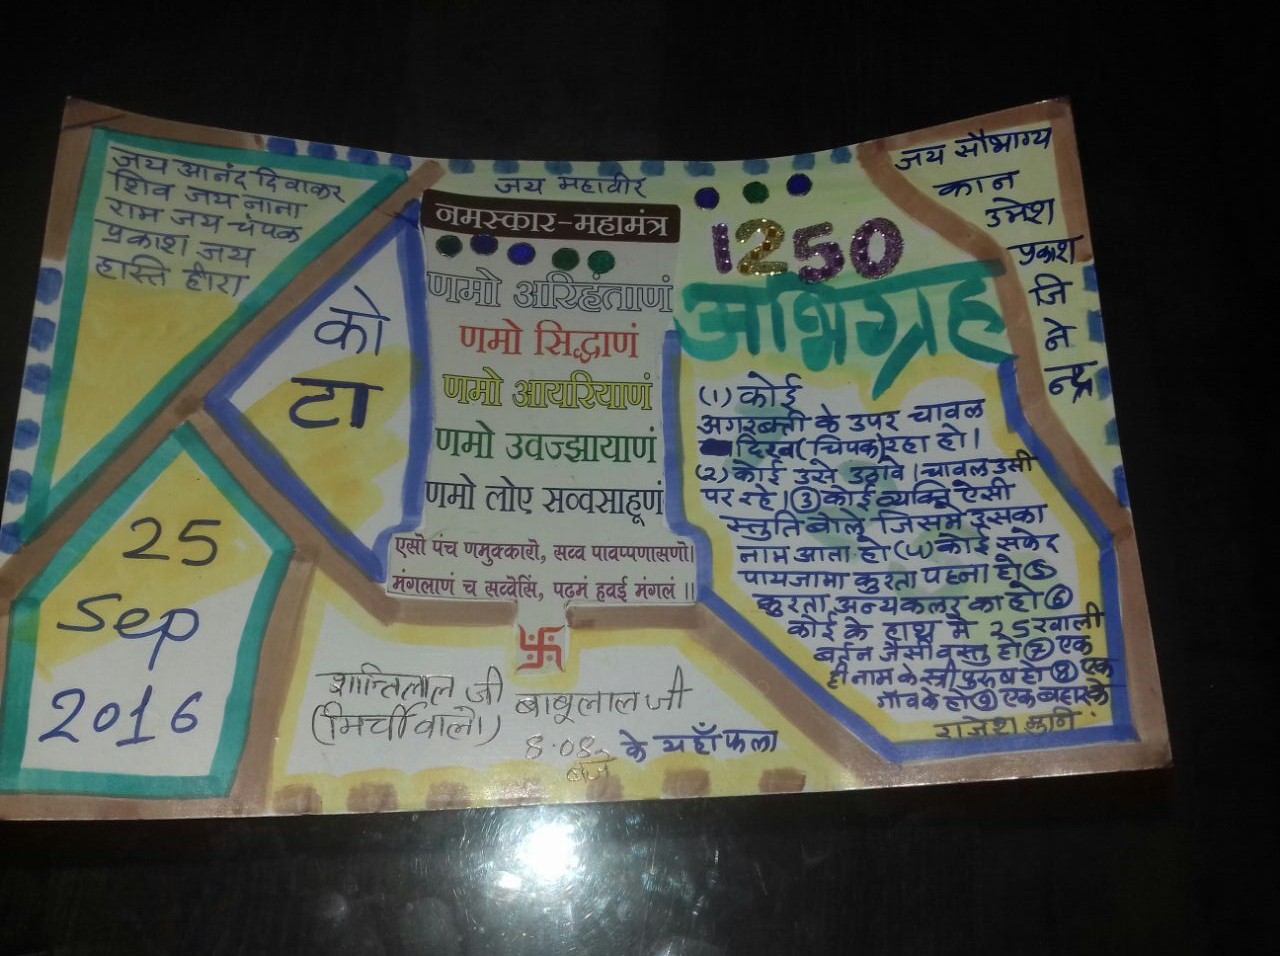 जय आनंद दिवाकर
शिव जय नाना
राम जय चंपक
प्रकाश जय
हास्ति हीरा
को
टा
25
Sep
2016
जय महावीर
नमस्कार-महामंत्र
णमो अरिहंताणं
णमो सिद्धाणं
णमो आयरियाणं
णमो उवज्झायाणं
णमो लोए सव्वसाहूणं
एसो पंच णमुक्कारो, सव्व पावप्पणासणो।
मंगलाणं च सव्वेसिं, पढमं हवई मंगलं ।।
शान्तिलाल जी बाबूलाल जी
(मिर्चीवाले)
8.08 के यहाँ फला
बजे
1250
अभिग्रह
(1) कोई
अगरबत्ती के उपर चावल
दिख (चिपक) रहा हो।
(2) कोई उसे उठावे। चावल उसी
पर रहे। (3) कोई व्यक्ति ऐसी
स्तुति बोले जिसमें इसका
नाम आता हो (4) कोई सफेद
पायजामा कुरता पहना हो (5)
कुरता अन्य कलर का हो (6)
कोई के हाथ में 25 खाली
बर्तन जैसी वस्तु हो (7) एक
ही नाम के स्त्री पुरुष हो (8) एक
गाँव के हो (9) एक बहार के
राजेश मुनि
जय सौभाग्य
कान
उमेश
प्रकाश
जि
ने
न्द्र